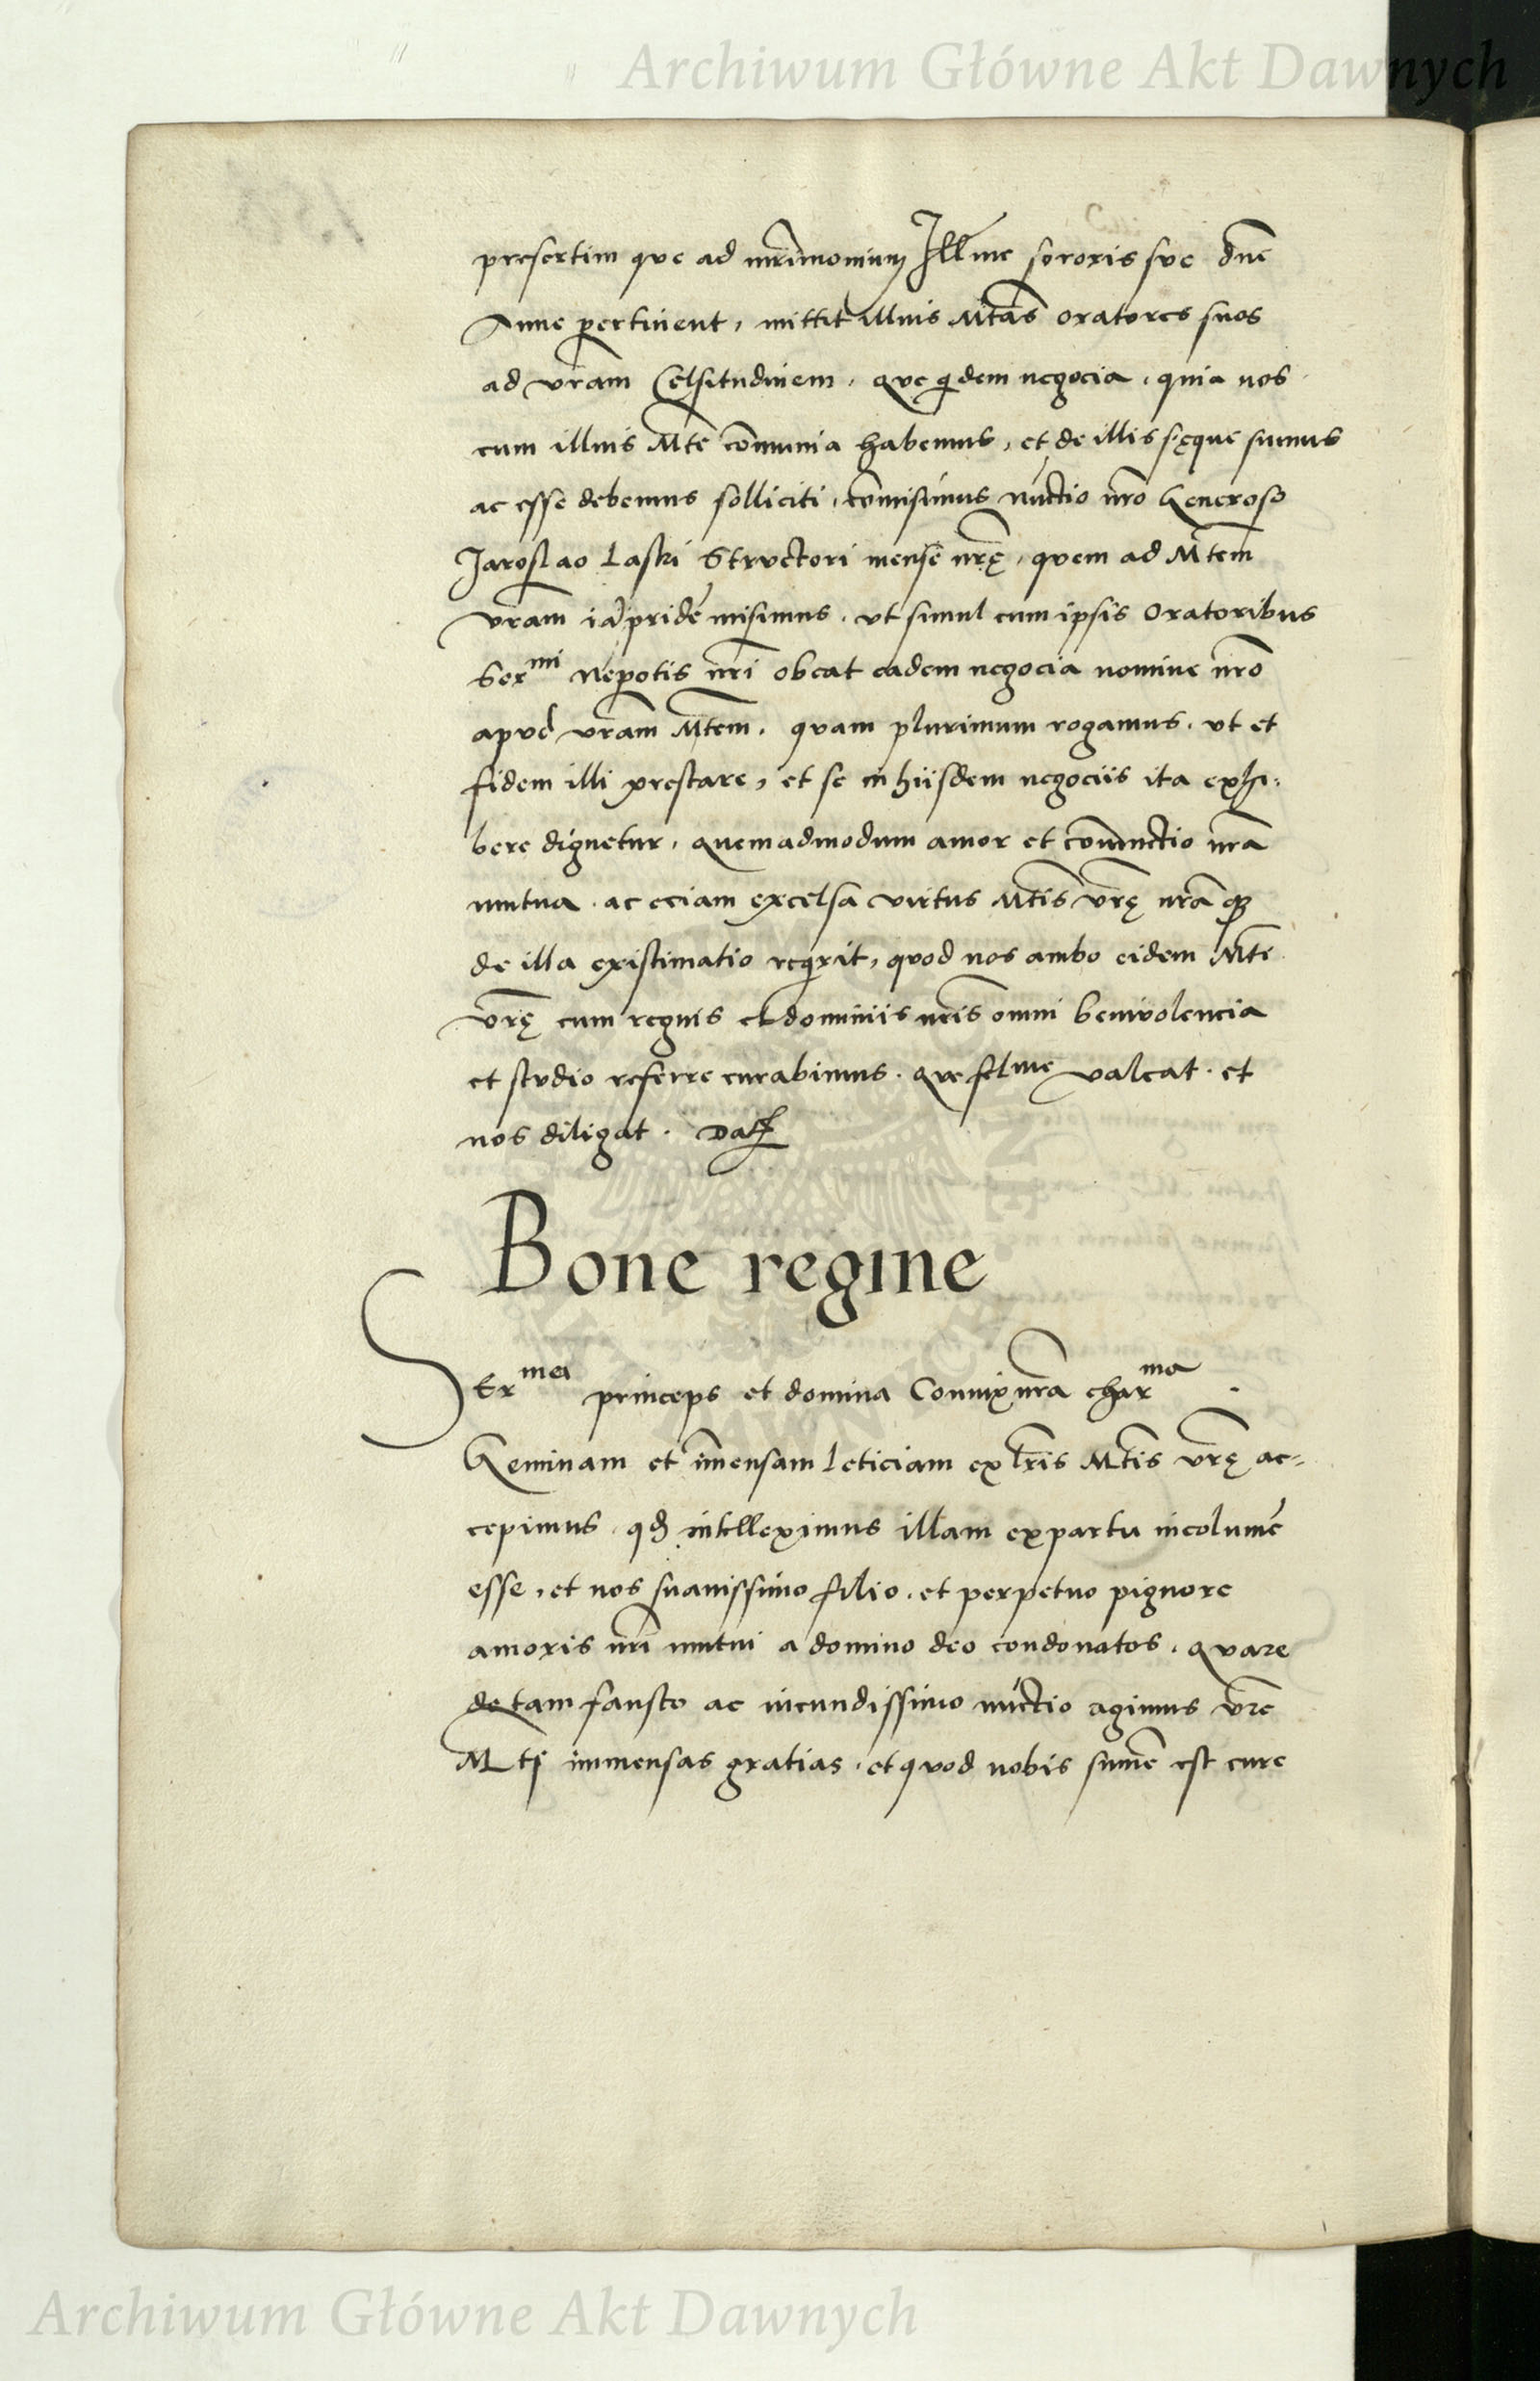 Archiwum Główne Akt Dawnych
presertim que ad mr̃imonium Illme sororis sue dn̄e
Anne pertinent, mittit illius Mt̄as oratores suos
ad vr̃am Celsitudinem. que qⁱdem negocia, quia nos
cum illius Mt̄e cōmunia habemus, et de illis sęque sumus
ac esse debemus solliciti, cōmisimus nūctio nr̃o Generoso
Jaroslao Laski Structori mense nr̃ę, quem ad Mt̄em
vr̃am iāpridē misimus. vt simul cum ipsis Oratoribus
Serᵐⁱ Nepotis nr̃i obeat eadem negocia nomine nr̃o
apud vr̃am Mt̄em. quam plurimum rogamus. vt et
fidem illi prestare, et se in hiisdem negociis ita exhi-
bere dignetur, quemadmodum amor et coniunctio nr̃a
mutua. ac eciam excelsa virtus Mt̄is vr̃ę nr̃aqꝫ
de illa existimatio reqⁱrit, quod nos ambo eidem Mt̄i
vr̃ę cum regnis et dominiis nr̃is omni benivolencia
et studio referre curabimus. que felᵐᵉ valeat. et
nos diligat. Datꝭ
Bone regine
Serᵐᵃ princeps et domina Coniux nr̃a charᵐᵃ.
Geminam et īmensam leticiam ex lr̃is Mt̄is vr̃ę ac-
cepimus, qđ intelleximus illam ex partu incolumē
esse, et nos suauissimo filio, et perpetuo pignore
amoris nr̃i mutui a domino deo condonatos. quare
de tam fausto ac iucundissimo nūctio agimus vr̃e
Mti immensas gratias. et quod nobis sum̄e est cure
Archiwum Główne Akt Dawnych